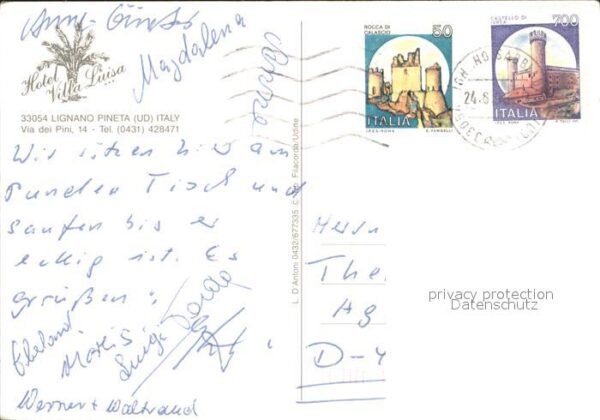 Anni - Günter
Magdalena
Hotel
Villa Luisa
33054 LIGNANO PINETA (UD) ITALY
Via dei Pini, 14 - Tel. (0431) 428471
Wir sitzen hier am
runden Tisch und
saufen bis er
eckig ist. Es
grüßen:
Luigi
Werner + Waltraud
L. D'Antoni 0432/677335
ROCCA DI
CALASCIO
50
ITALIA
CASTELLO DI
IVREA
700
ITALIA
24.8
Herrn
The
Ag
D-4
privacy protection
Datenschutz